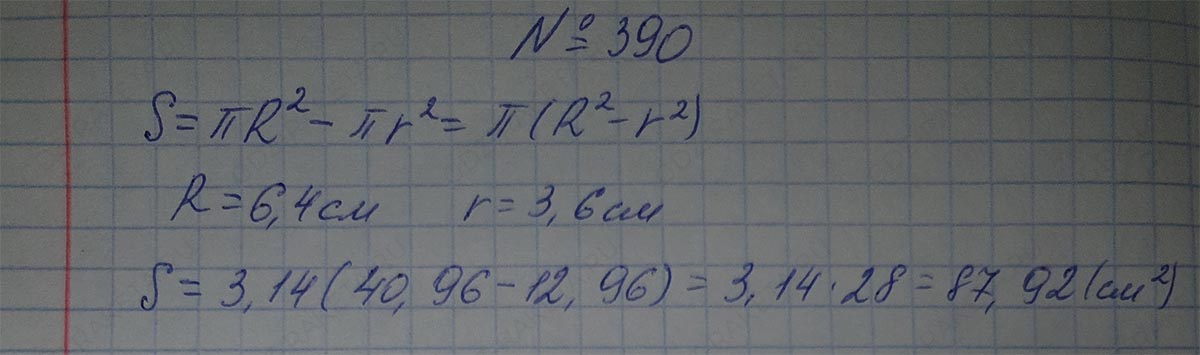 № 390
S = πR² - πr² = π(R² - r²)
R = 6,4 см r = 3,6 см
S = 3,14(40,96 - 12,96) = 3,14 · 28 = 87,92 (см²)